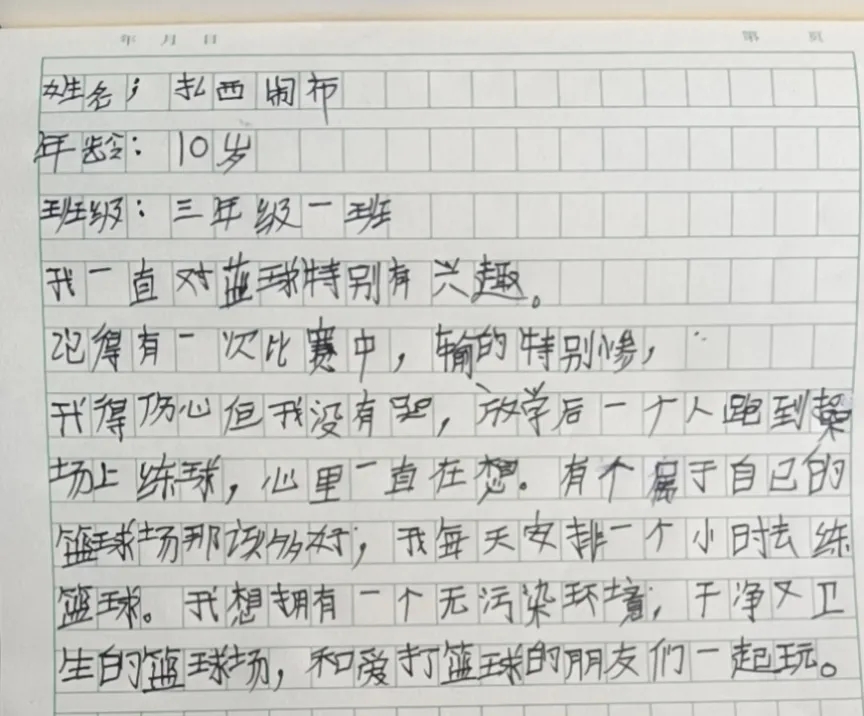 年 月 日 第 页
姓名；扎西闹布
年龄：10岁
班级：三年级一班
我一直对蓝球特别有兴趣。
记得有一次比赛中，输的特别惨，
我得伤心但我没有哭，放学后一个人跑到操
场上练球，心里一直在想。有个属于自己的
篮球场那该多好，我每天安排一个小时去练
篮球。我想拥有一个无污染环境，干净又卫
生的篮球场，和爱打篮球的朋友们一起玩。